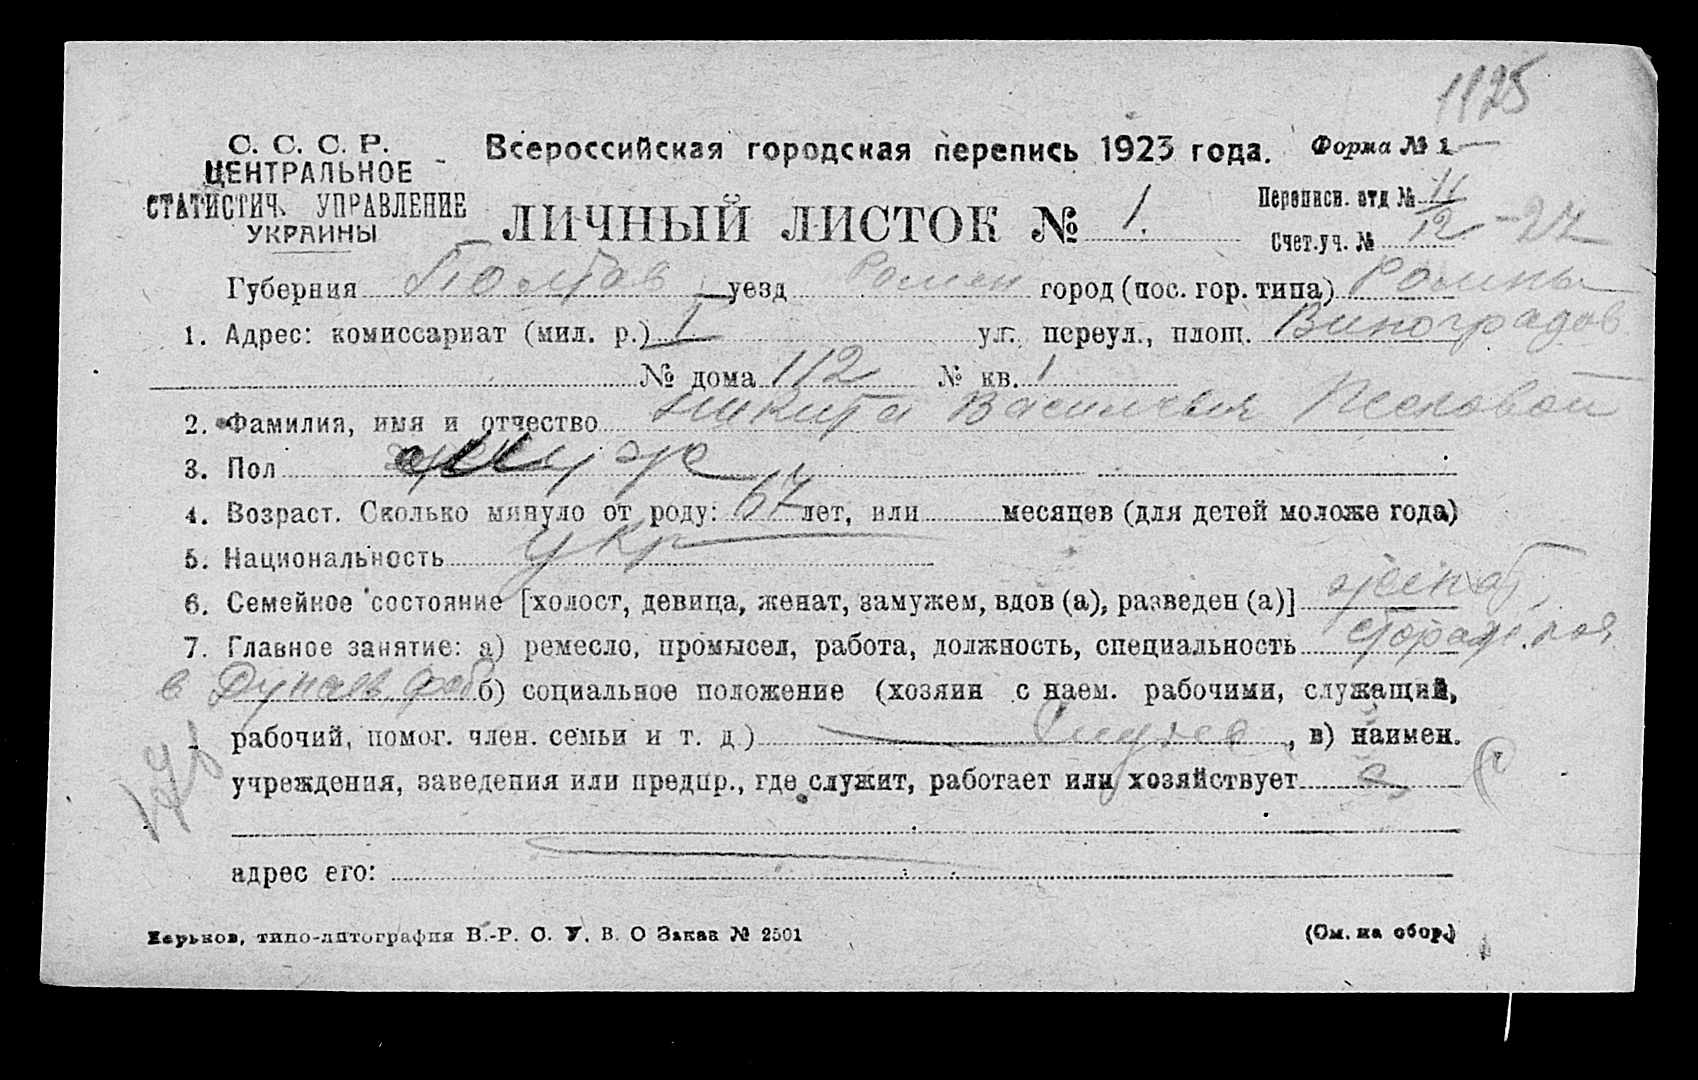 1125
С. С. С. Р.
ЦЕНТРАЛЬНОЕ
СТАТИСТИЧ. УПРАВЛЕНИЕ
УКРАИНЫ
Всероссийская городская перепись 1923 года. Форма № 1
ЛИЧНЫЙ ЛИСТОК № 1.
Переписн. отд № 11
Счет.уч. № 12 - 27
Губерния Полтав уезд Ромен город (пос. гор. типа) Ромны
1. Адрес: комиссариат (мил. р.) I ул. переул., площ. Виноградов
№ дома 112 № кв. 1
2. Фамилия, имя и отчество Никита Васильевич
3. Пол муж
4. Возраст. Сколько минуло от роду: 67 лет, или месяцев (для детей моложе года)
5. Национальность укр
6. Семейное состояние [холост, девица, женат, замужем, вдов (а), разведен (а)] женат,
7. Главное занятие: а) ремесло, промысел, работа, должность, специальность
в б) социальное положение (хозяин с наем. рабочими, служащий,
рабочий, помог. член. семьи и т. д.) , в) наимен.
учреждения, заведения или предпр., где служит, работает или хозяйствует
адрес его:
Харьков, типо-литография В.-Р. О. У. В. О Заказ № 2501 (См. на обор.)